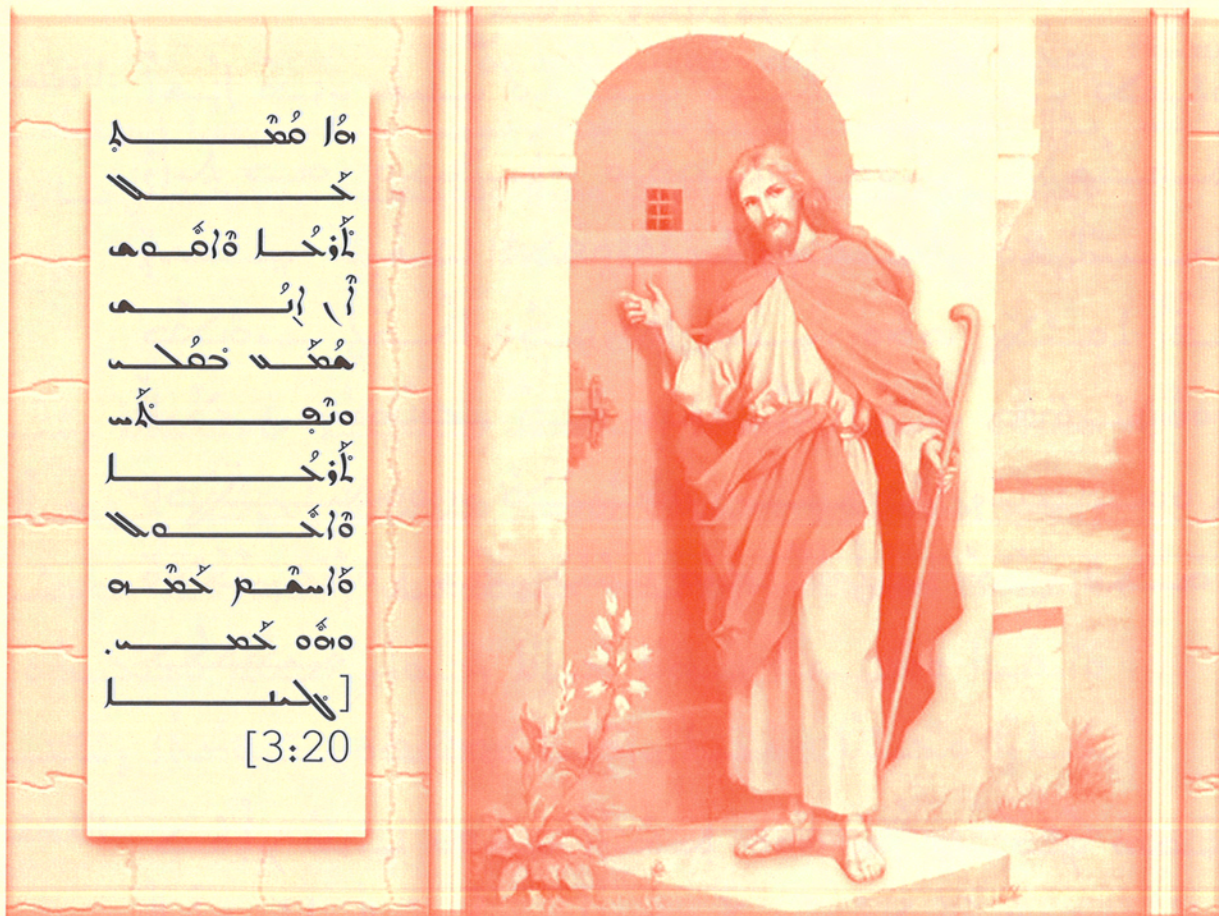 ܗܳܐ ܩܳܡܶܬ݂
ܥܰܠ
ܬܰܪܥܳܐ ܘܶܐܩܽܘܫ
ܐܶܢ ܐܺܢܳܫ
ܫܳܡܰܥ ܒܩܳܠܝ
ܘܢܶܦ݂ܬܰܚ
ܬܰܪܥܳܐ
ܘܶܐܥܽܘܠ
ܘܶܐܚܫܶܡ ܥܰܡܶܗ
ܘܗܽܘ ܥܰܡܝ.
[ܓܠܝܢܐ
3:20]